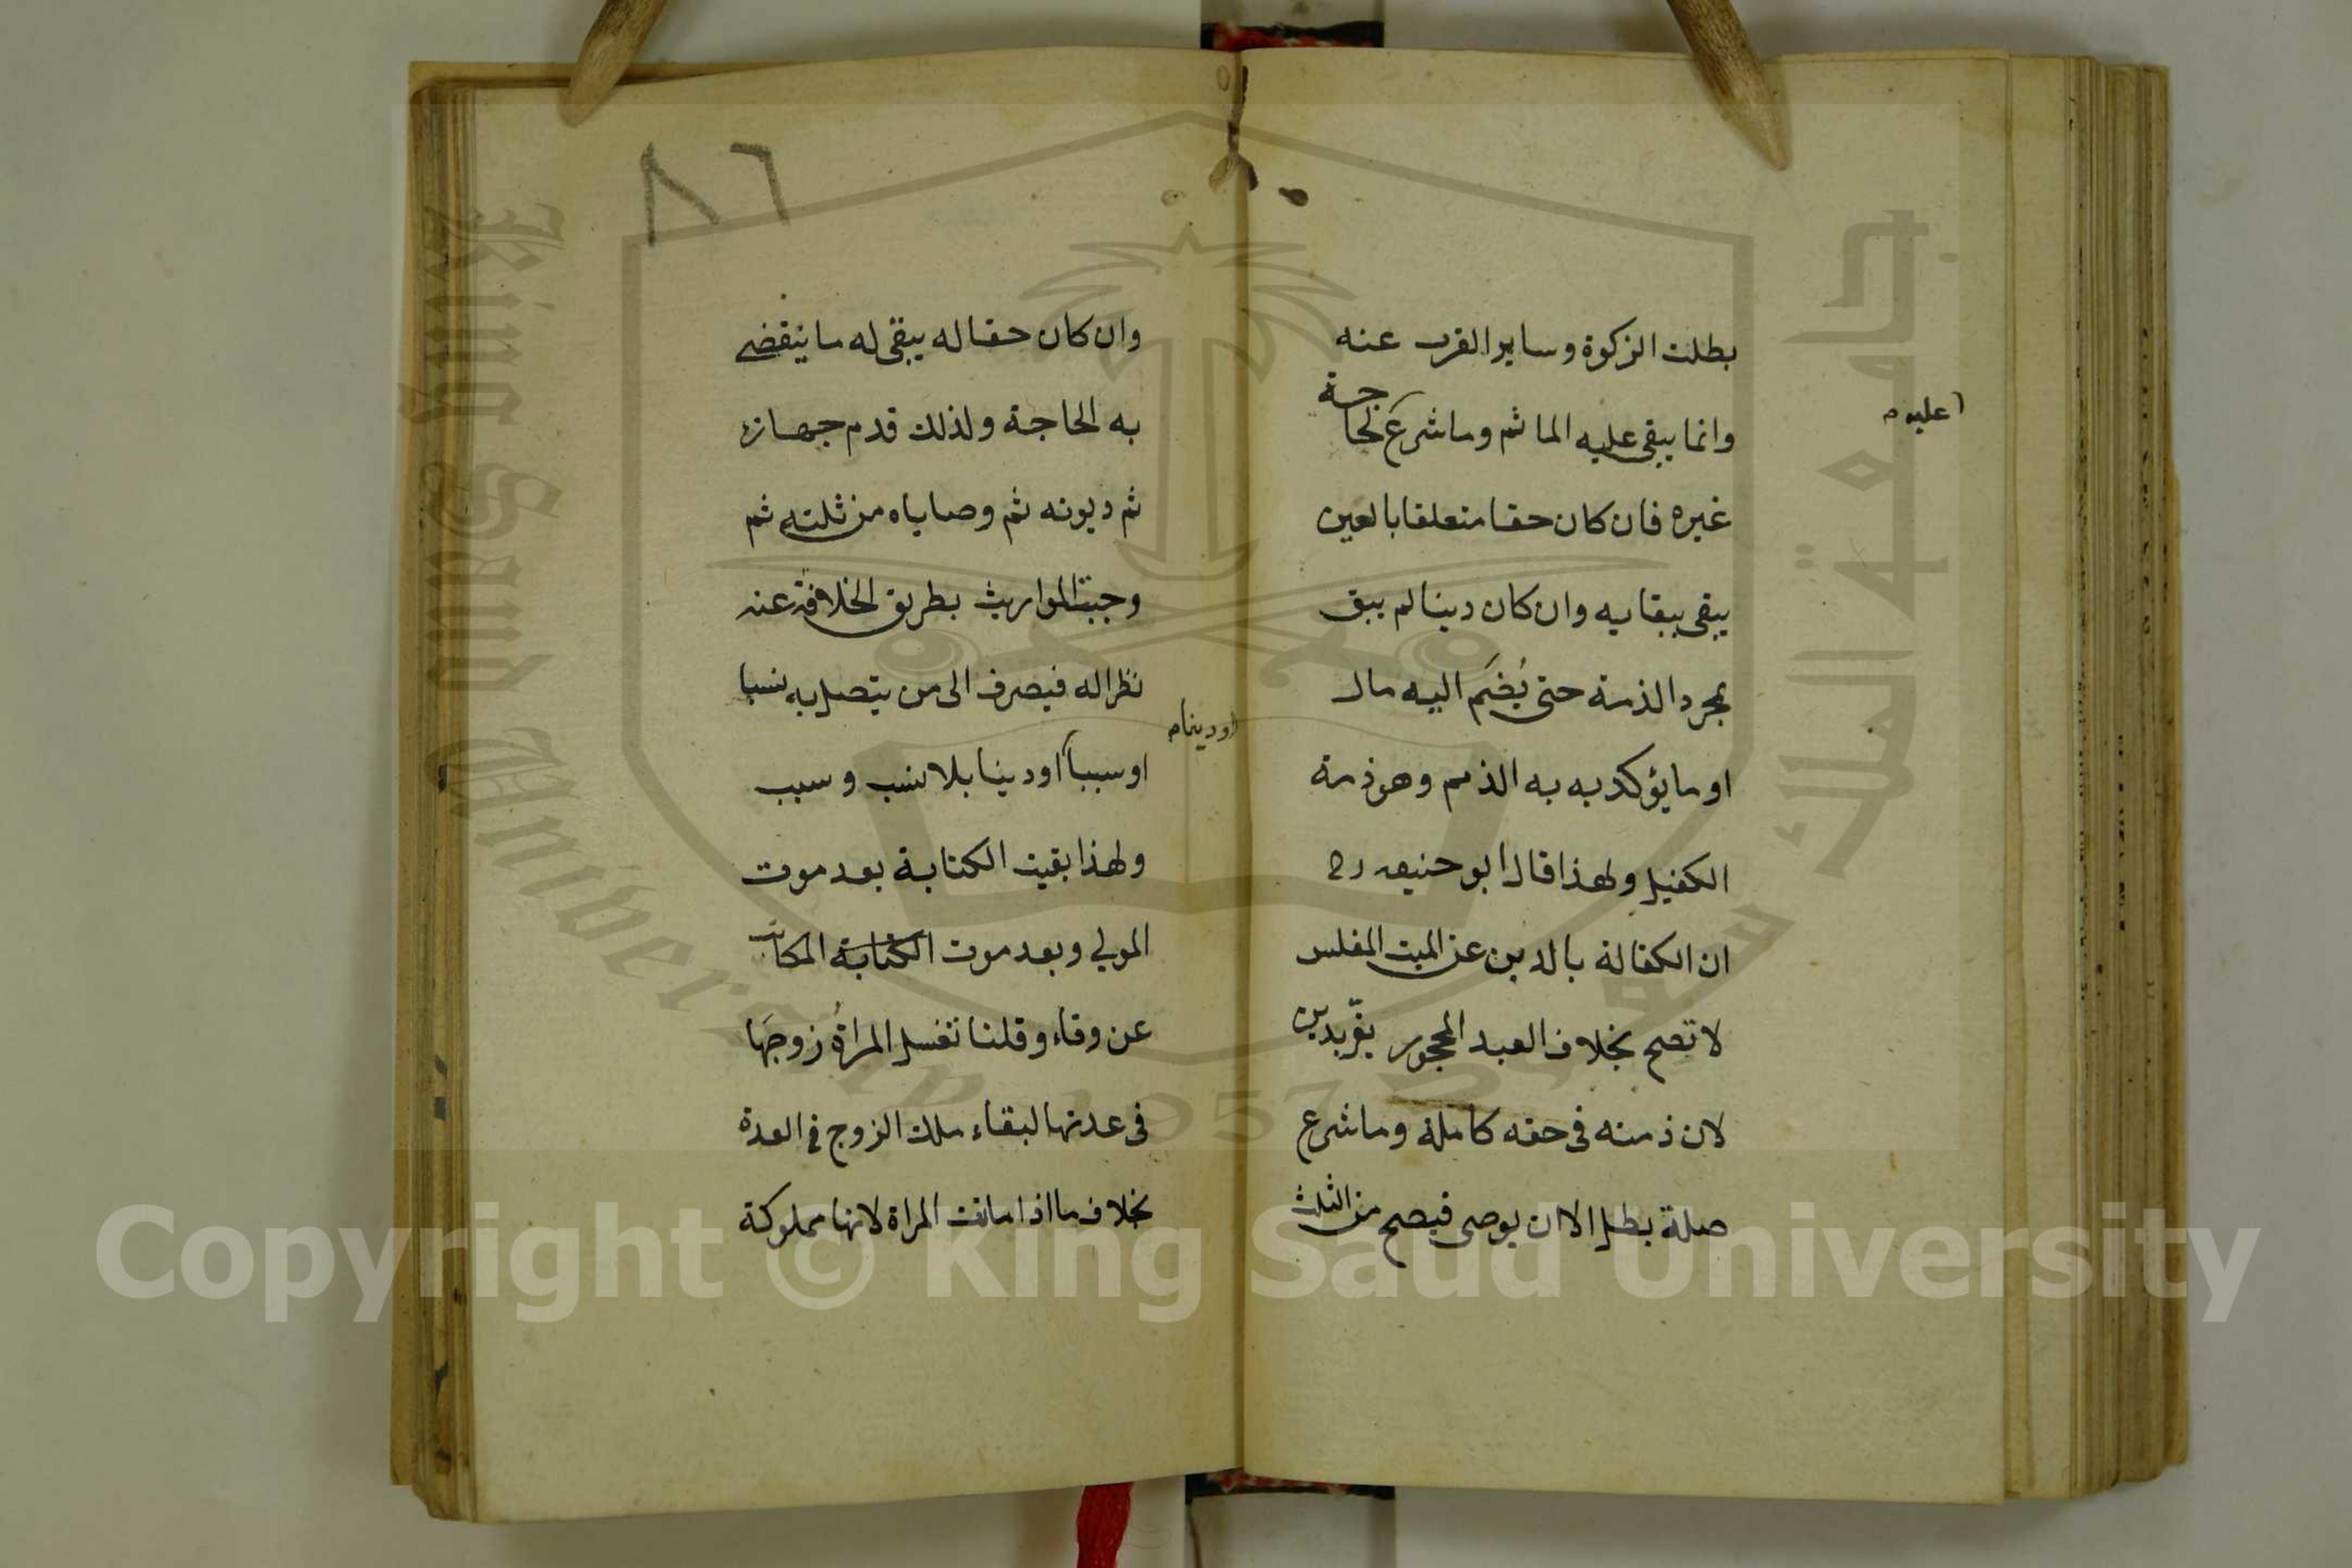 بطلت الزكوة وساير القرب عنه
وانما يبقى عليه الماثم وما شرع لحاجة
عليه م
غيره فان كان حقا متعلقا بالعين
يبقى ببقايه وان كان دينا لم يبق
بمجرد الذمة حتى يُضَم اليه مال
او ما يؤكد به به الذمم وهو ذمة
الكفيل ولهذا قال ابو حنيفه رح
ان الكفالة بالدين عن الميت المفلس
لا تصح بخلاف العبد المحجور يقرّ بدين
لان ذمته فى حقه كاملة وما شرع
صلة بطل الا ان يوصى فيصح من الثلث
٨٦
وان كان حقا له يبقى له ما ينقضے
به الحاجة ولذلك قدم جهازه
ثم ديونه ثم وصاياه من ثلثه ثم
وجبت المواريث بطريق الخلافة عنه
نظرا له فيصرف الى من يتصل به نسبا
او دينا م
او سبباً او دينا بلا نسب وسبب
ولهذا بقيت الكتابة بعد موت
المولي وبعد موت الكتابة المكاتب
عن وفاء وقلنا تغسل المراةُ زوجَها
فى عدتها لبقاء ملك الزوج فى العدة
بخلاف ما اذا ماتت المراة لانها مملوكة
جامعة الملك سعود
King Saud University 1957
Copyright © King Saud University